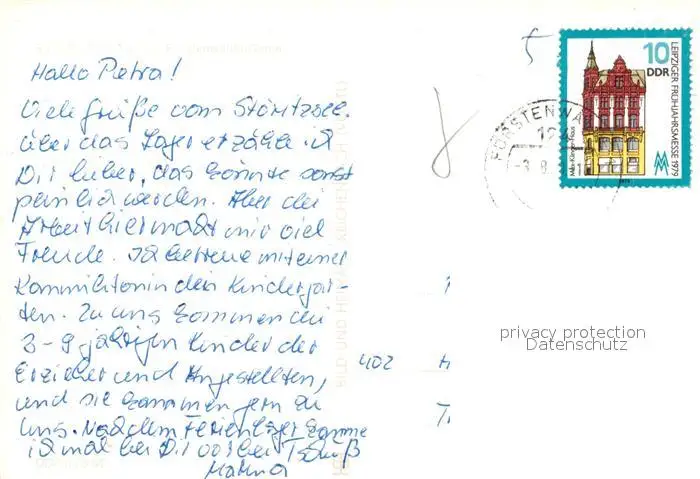 Hallo Petra!
Viele Grüße vom Störitzsee.
Über das Lager erzähle ich
Dir lieber, das könnte sonst
peinlich werden. Aber die
Arbeit hier macht mir viel
Freude. Ich betreue mit einer
Kommilitonin den Kindergar-
ten. Zu uns kommen die
3-9-jährigen Kinder der
Erzieher und Angestellten,
und sie kommen gern zu
uns. Nach dem Ferienlager komme
ich mal bei Dir vorbei Tschüß
5
10
DDR
LEIPZIGER FRÜHJAHRSMESSE 1979
FÜRSTENWA
402
privacy protection
Datenschutz